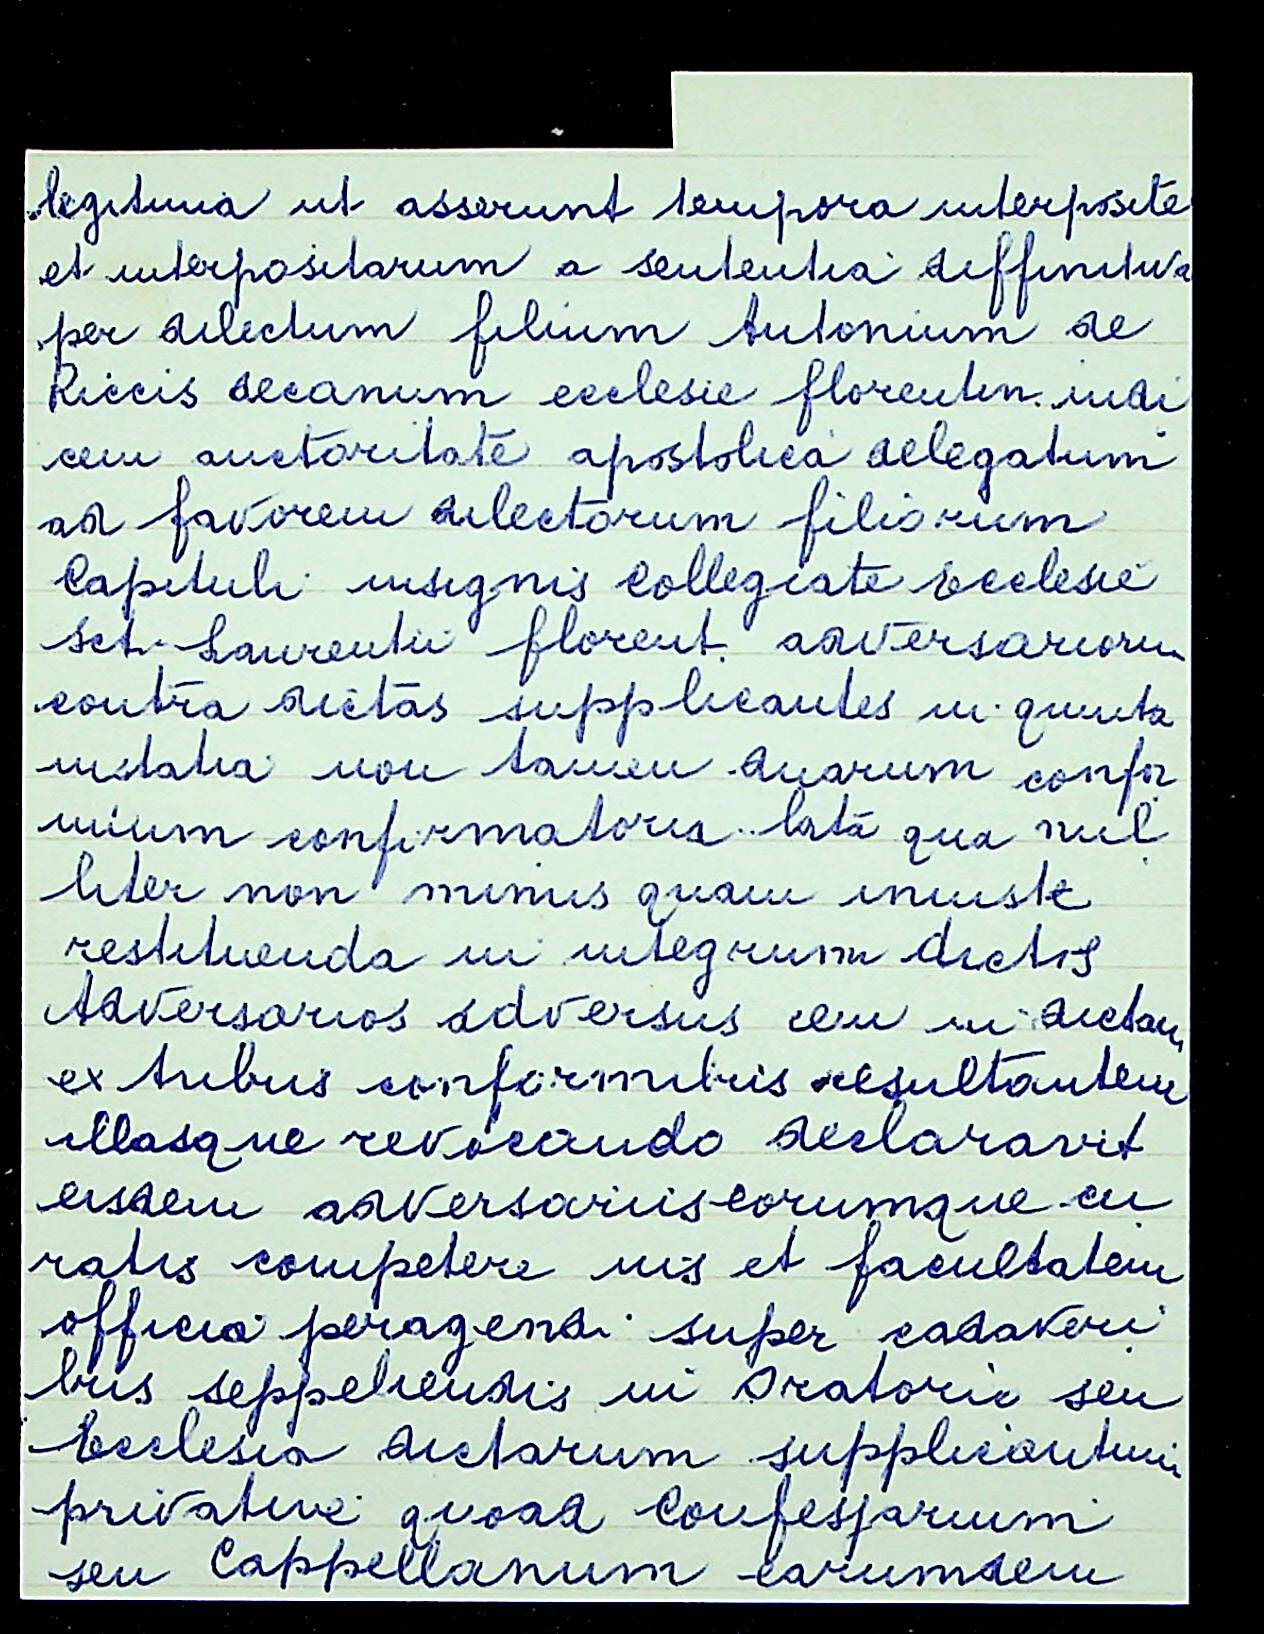 legitima ut asserunt tempora interposite
et interpositarum a sententia diffinitiva
per dilectum filium Antonium de
Riccis decanum ecclesie florentin. iudi
cem auctoritate apostolica delegatum
ad favorem dilectorum filiorum
Capituli insignis Collegiate Ecclesie
Scti. Laurentii florent. adversariorum
contra dictas supplicantes in quinta
instatia non tamen duarum confor
mium confirmatoria lata qua nul
liter non minus quam iniuste
restituenda in integrum dictos
Adversarios adversus rem iu dictam
ex tribus conformibus resultantem
illasque revocando declaravit
eisdem adversariis eorumque cu
ratis competere ius et facultatem
officia peragendi super cadaveri
bus seppeliendis in Oratorio seu
Ecclesia dictarum supplicantium
privative quoad Confessarium
seu Cappellanum earumdem